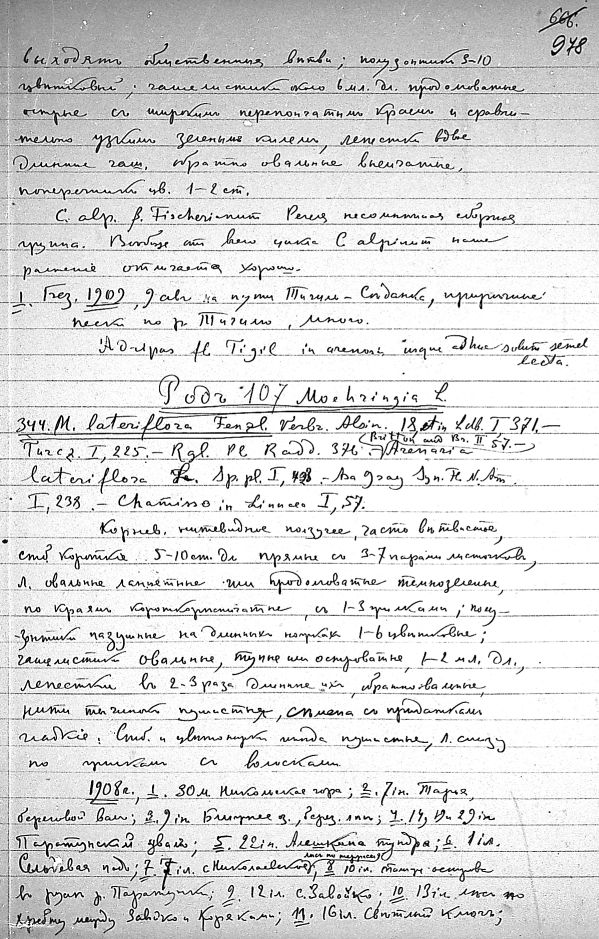 666.
978
выходятъ облиственныя вѣтви; полузонтики 3-10
цвѣтковый; чашелистики около 6 мл. дл. продолговатые
острые съ широкимъ перепончатымъ краемъ и сравни-
тельно узкимъ зеленымъ килемъ, лепестки вдвое
длиннѣе чаш. обратно овальные выемчатые,
поперечникъ цв. 1-2 ст.
C. alp. β. Fischerianum Регеля несомнѣнная сборная
группа. Вообще отъ всего цикла C. alpinum наше
растеніе отличается хорошо.
1. Грез. 1909, 9 авг на пути Тигиль-Сѣданка, прирѣчные
пески по р Тигилю, много.
Ad ripas fl Tigil in arenosis usque adhuc solum semel
lecta.
Родъ 107 Moehringia L.
344. M. lateriflora Fenzl. Verbr. Alsin. 18, et in Ldb. I 371.-
Turcz. I, 225. - Rgl. Pl Radd. 376. - (Britton and Br. II 57.- Arenaria
lateriflora L. Sp. pl. I, 423 - Asa Gray Syn. Fl. N. Am.
I, 238. - Chamisso in Linnaea I, 57.
Корнев. нитевидное ползучее, часто вѣтвистое,
стб короткіе 5-10 ст. дл прямые съ 3-7 парами листочковъ,
л. овальные ланцетные или продолговатые темнозеленые,
по краямъ короткорѣснитчатые, съ 1-3 жилками; полу-
зонтики пазушные на длинныхъ ножкахъ 1-6 цвѣтковые;
чашелистики овальные, тупые или островатые, 1-2 мл. дл.,
лепестки въ 2-3 раза длиннѣе ихъ, обратноовальные,
нити тычинокъ пушистыя, сѣмена съ придатками
гладкіе. Стб. и цвѣтоножки иногда пушистые, л. снизу
по жилкамъ съ волосками.
1908 г., 1. 30 м. Никольская гора; 2. 7 in. Тарья,
береговой валъ; 3. 9 in Ближнее з., берез. лѣсъ; 4. 14, 19 и 29 in
Паратунскій увалъ; 5. 22 in. Алешкина тундра; 6. 1 il.
Сельдевая падь; 7. 7 il. с Николаевское, лѣсъ по террасѣ; 8 10 il.
въ р. Паратунки; 9. 12 il. с. Завойко. 10. 13 il. лѣсъ по
хребту между Завойко и Коряками; 11. 16 il. Свѣтлый Ключъ;